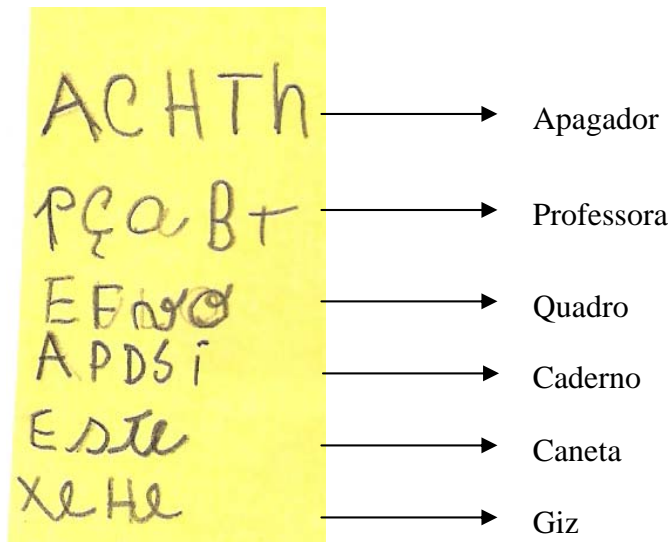 ACHTh Apagador
PÇaBt Professora
EEnro Quadro
APDSi Caderno
Este Caneta
XeHe Giz